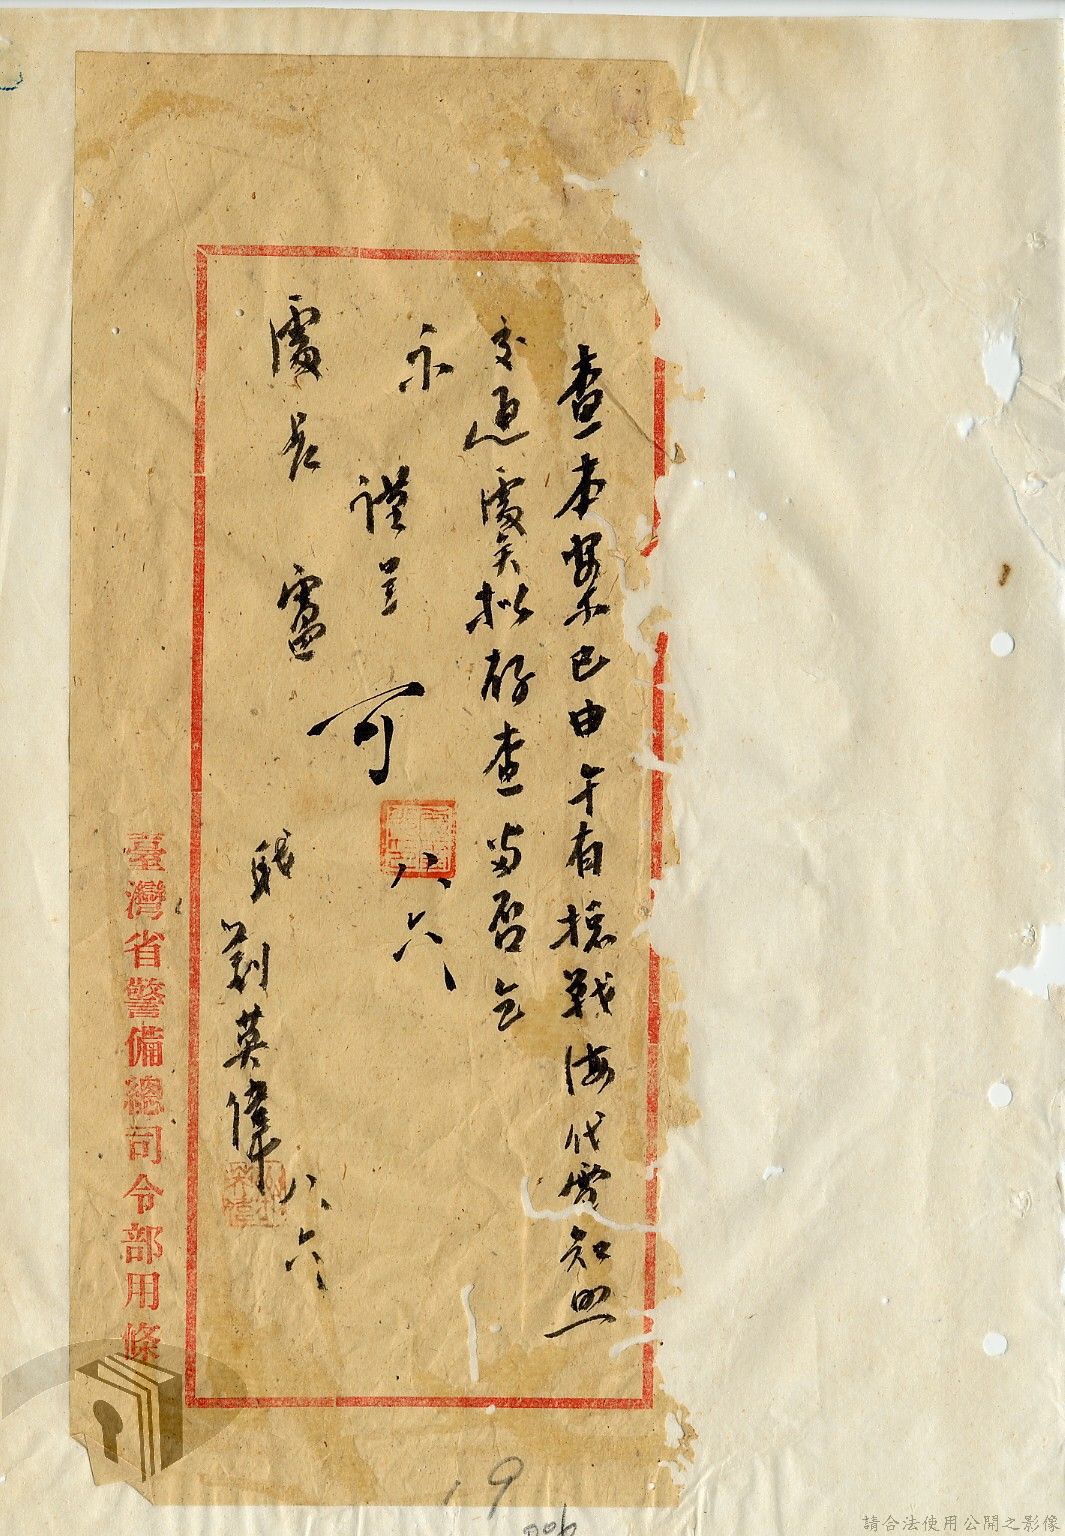 查本案已由午有總戰海代電知照
交通處矣擬存查當否乞
示
謹呈
可
八六
處長 盧
職 劉英偉
八六
臺灣省警備總司令部用條
19
006
請合法使用公開之影像